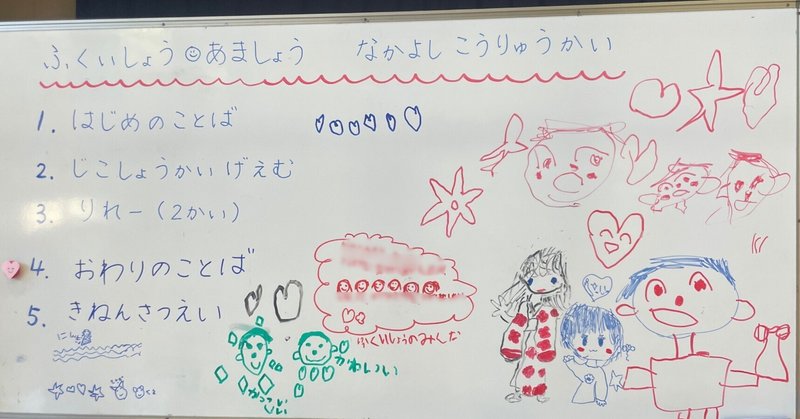 ふくいしょう あましょう なかよし こうりゅうかい
1. はじめのことば
2. じこしょうかい げえむ
3. りれー(2かい)
4. おわりのことば
5. きねんさつえい
ふくいしょうのみんな
かわいい
かっこいい